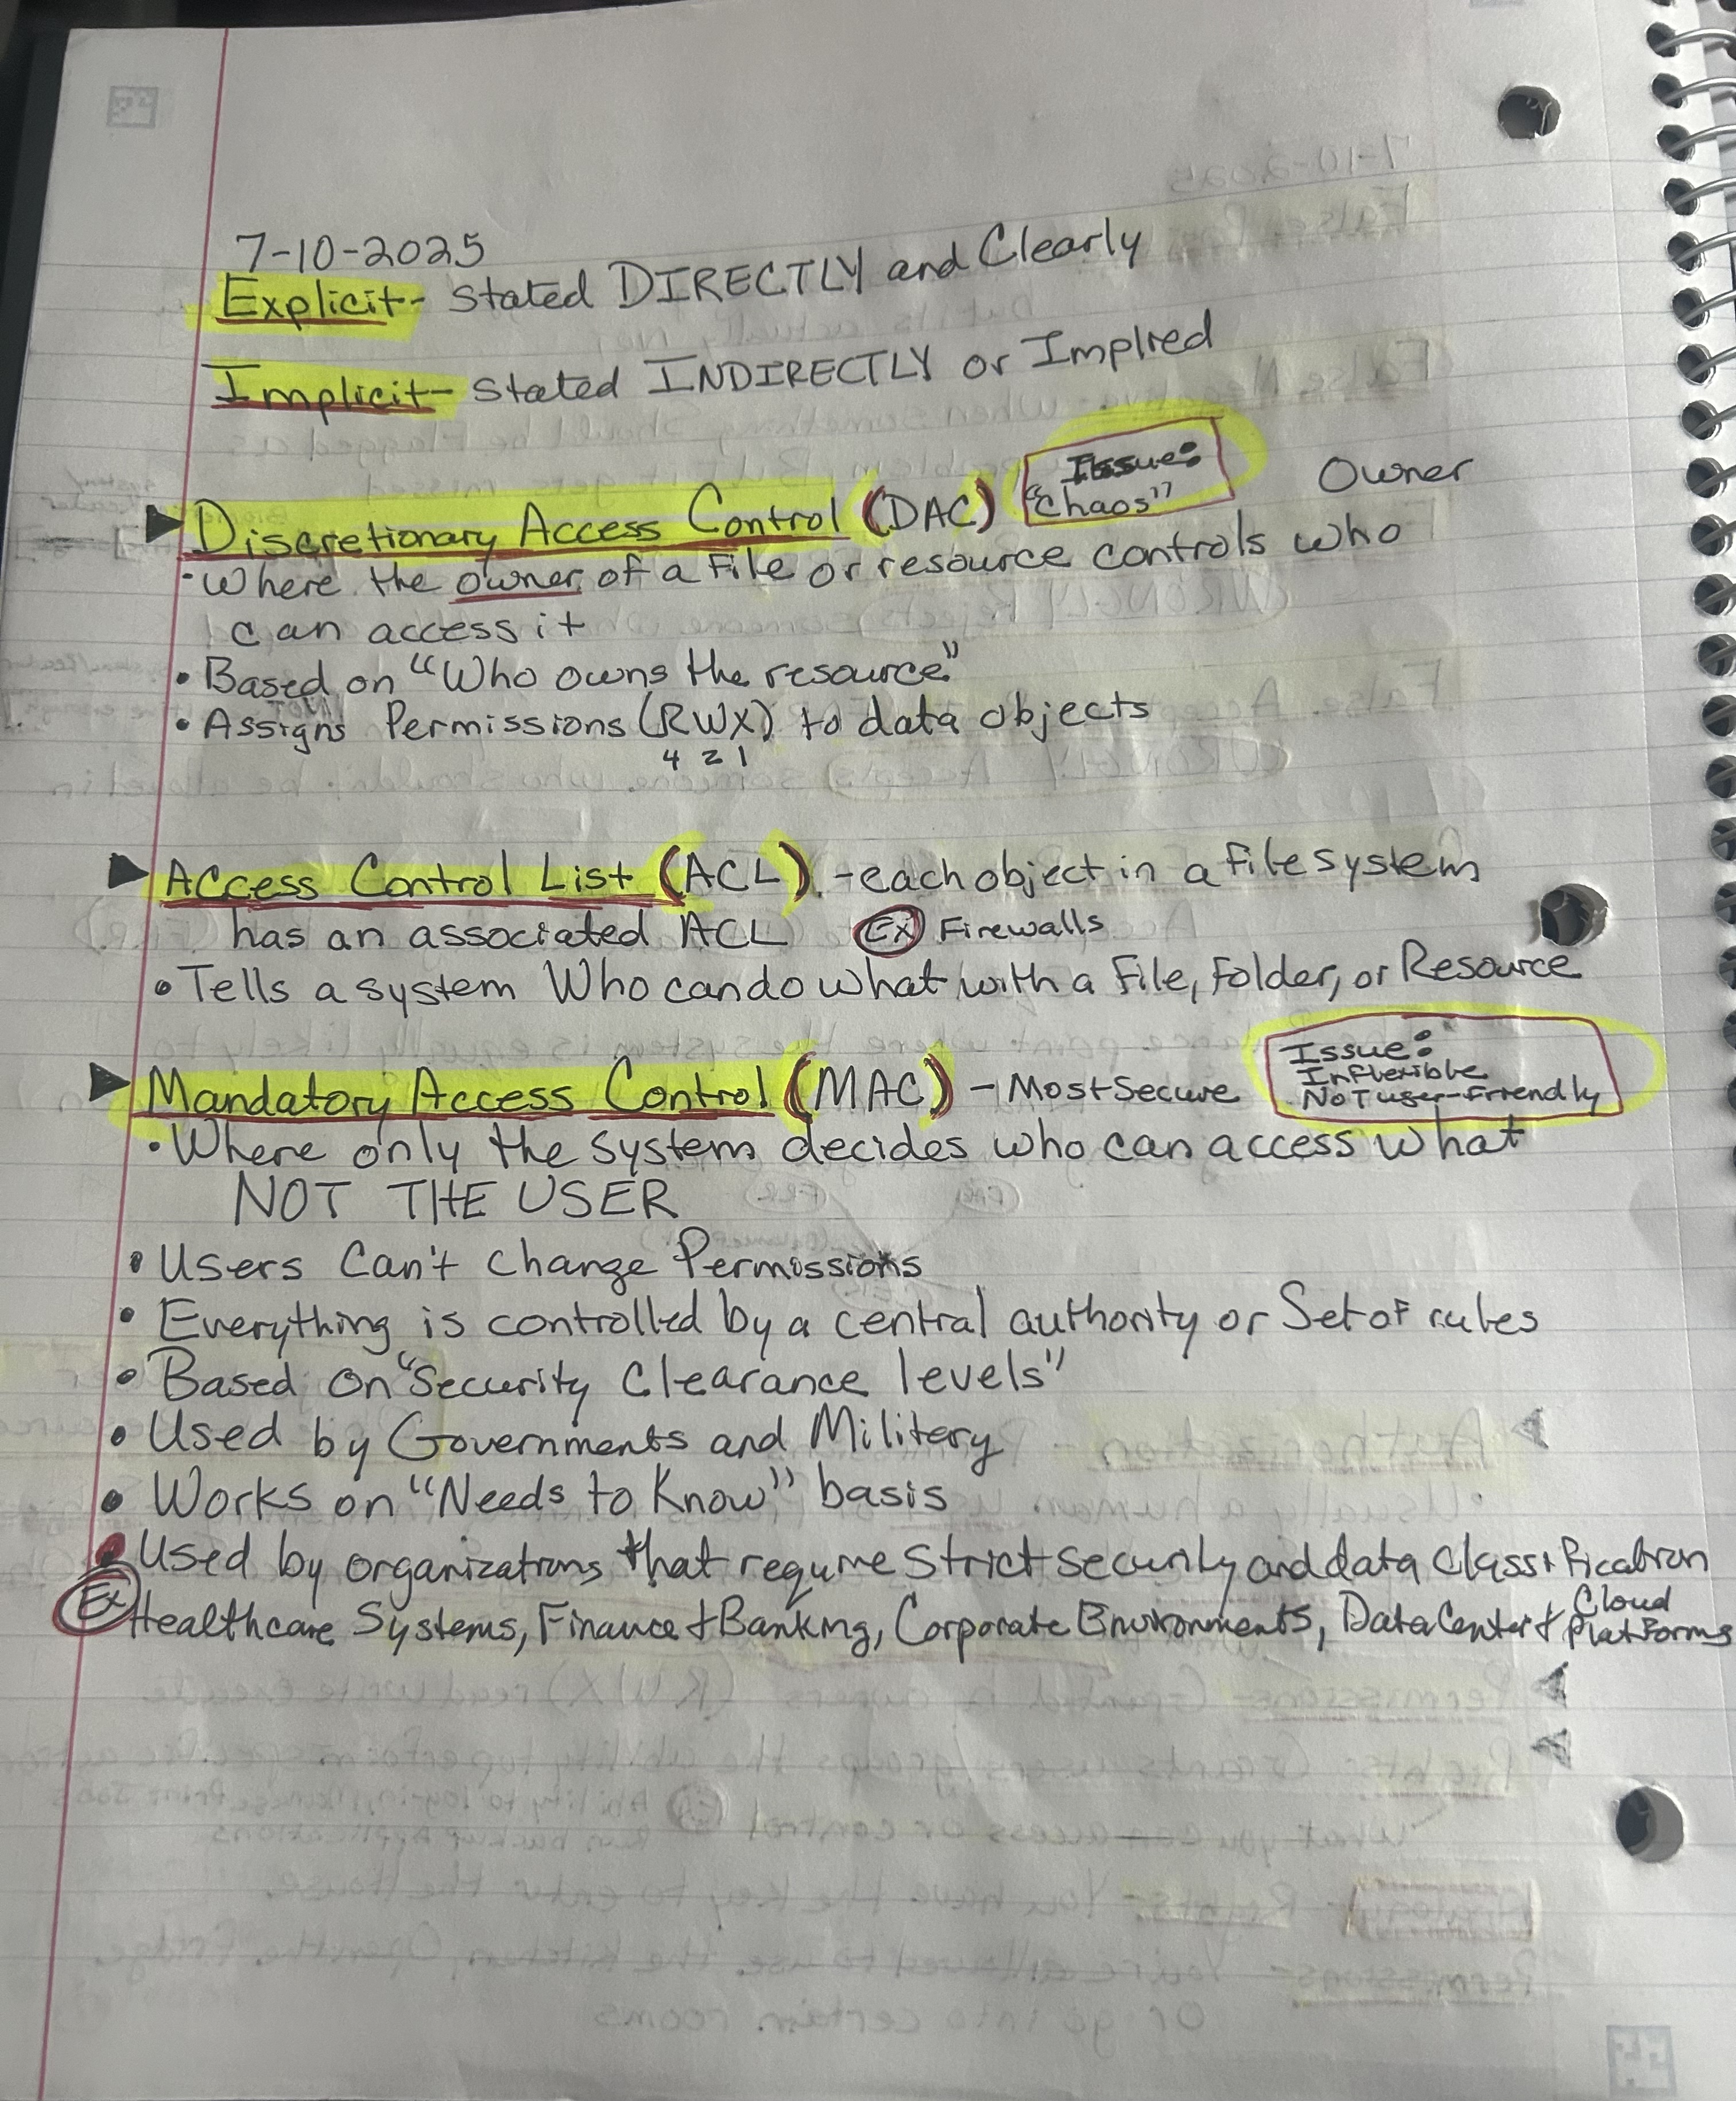 7-10-2025
Explicit- Stated DIRECTLY and Clearly
Implicit- Stated INDIRECTLY or Implied
Issue:
"Chaos"
Owner
Discretionary Access Control (DAC)
- Where the owner of a File or resource controls who
can access it
• Based on "Who owns the resource"
• Assigns Permissions (RWX) to data objects
4 2 1
Access Control List (ACL) - each object in a file system
has an associated ACL Ex Firewalls
• Tells a system Who can do what with a File, Folder, or Resource
Mandatory Access Control (MAC) - Most Secure
Issue:
Inflexible
NOT user-Friendly
• Where only the system decides who can access what
NOT THE USER
• Users Can't change Permissions
• Everything is controlled by a central authority or Set of rules
• Based on "Security Clearance levels"
• Used by Governments and Military
• Works on "Needs to Know" basis
• Used by organizations that require strict security and data classification
Ex Healthcare Systems, Finance & Banking, Corporate Environments, Data Center & Cloud Platforms